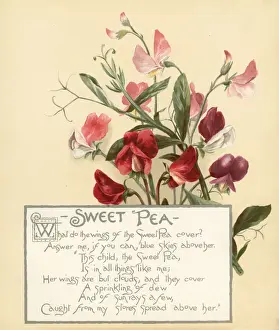 - SWEET PEA -
What do the wings of the Sweet Pea cover?
Answer me, if you can, blue skies above her.
"This child, the sweet Pea,
Is in all things like me;
Her wings are but clouds, and they cover
A sprinkling of dew
And of sun rays a few,
Caught from my stores spread above her."